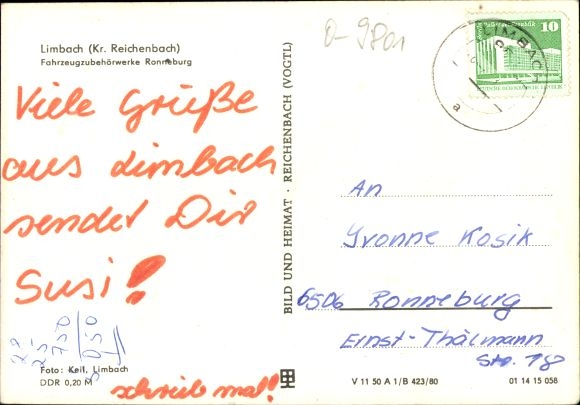 Limbach (Kr. Reichenbach)
Fahrzeugzubehörwerke Ronneburg
Viele Grüße
aus Limbach
sendet Dir
Susi!
schreib mal!
Foto: Keil, Limbach
DDR 0,20 M
BILD UND HEIMAT · REICHENBACH (VOGTL)
O-9801
LIMBACH
a
10
An
Yvonne Kosik
6506 Ronneburg
Ernst-Thälmann
Str.
V 11 50 A 1/B 423/80
01 14 15 058